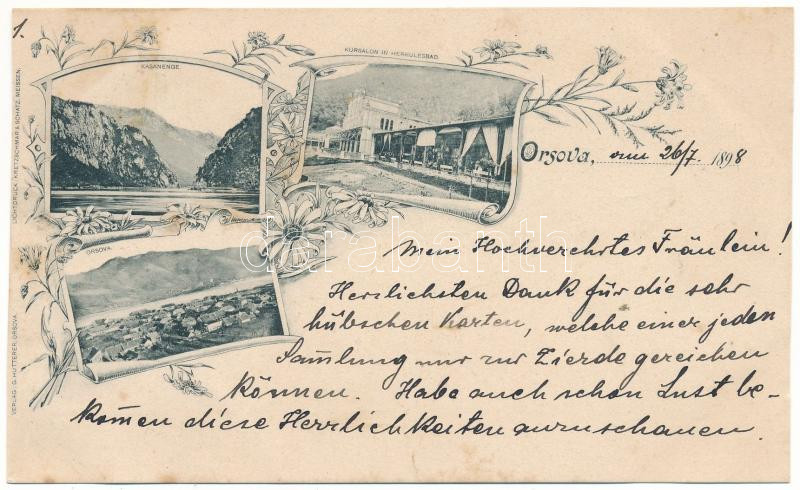 1.
KASANENGE
KURSALON IN HERKULESBAD
ORSOVA
LICHTDRUCK: KRETZSCHMAR & SCHATZ, MEISSEN.
VERLAG: G. HUTTERER, ORSOVA.
Orsova, am 26/7 1898
Mein Hochverehrtes Fräulein!
Herzlichsten Dank für die sehr
hübschen Karten, welche einer jeden
Sam̅lung nur zur Zierde gereichen
können. Habe auch schon Lust be-
kom̅en diese Herrlichkeiten anzuschauen.
darabanth